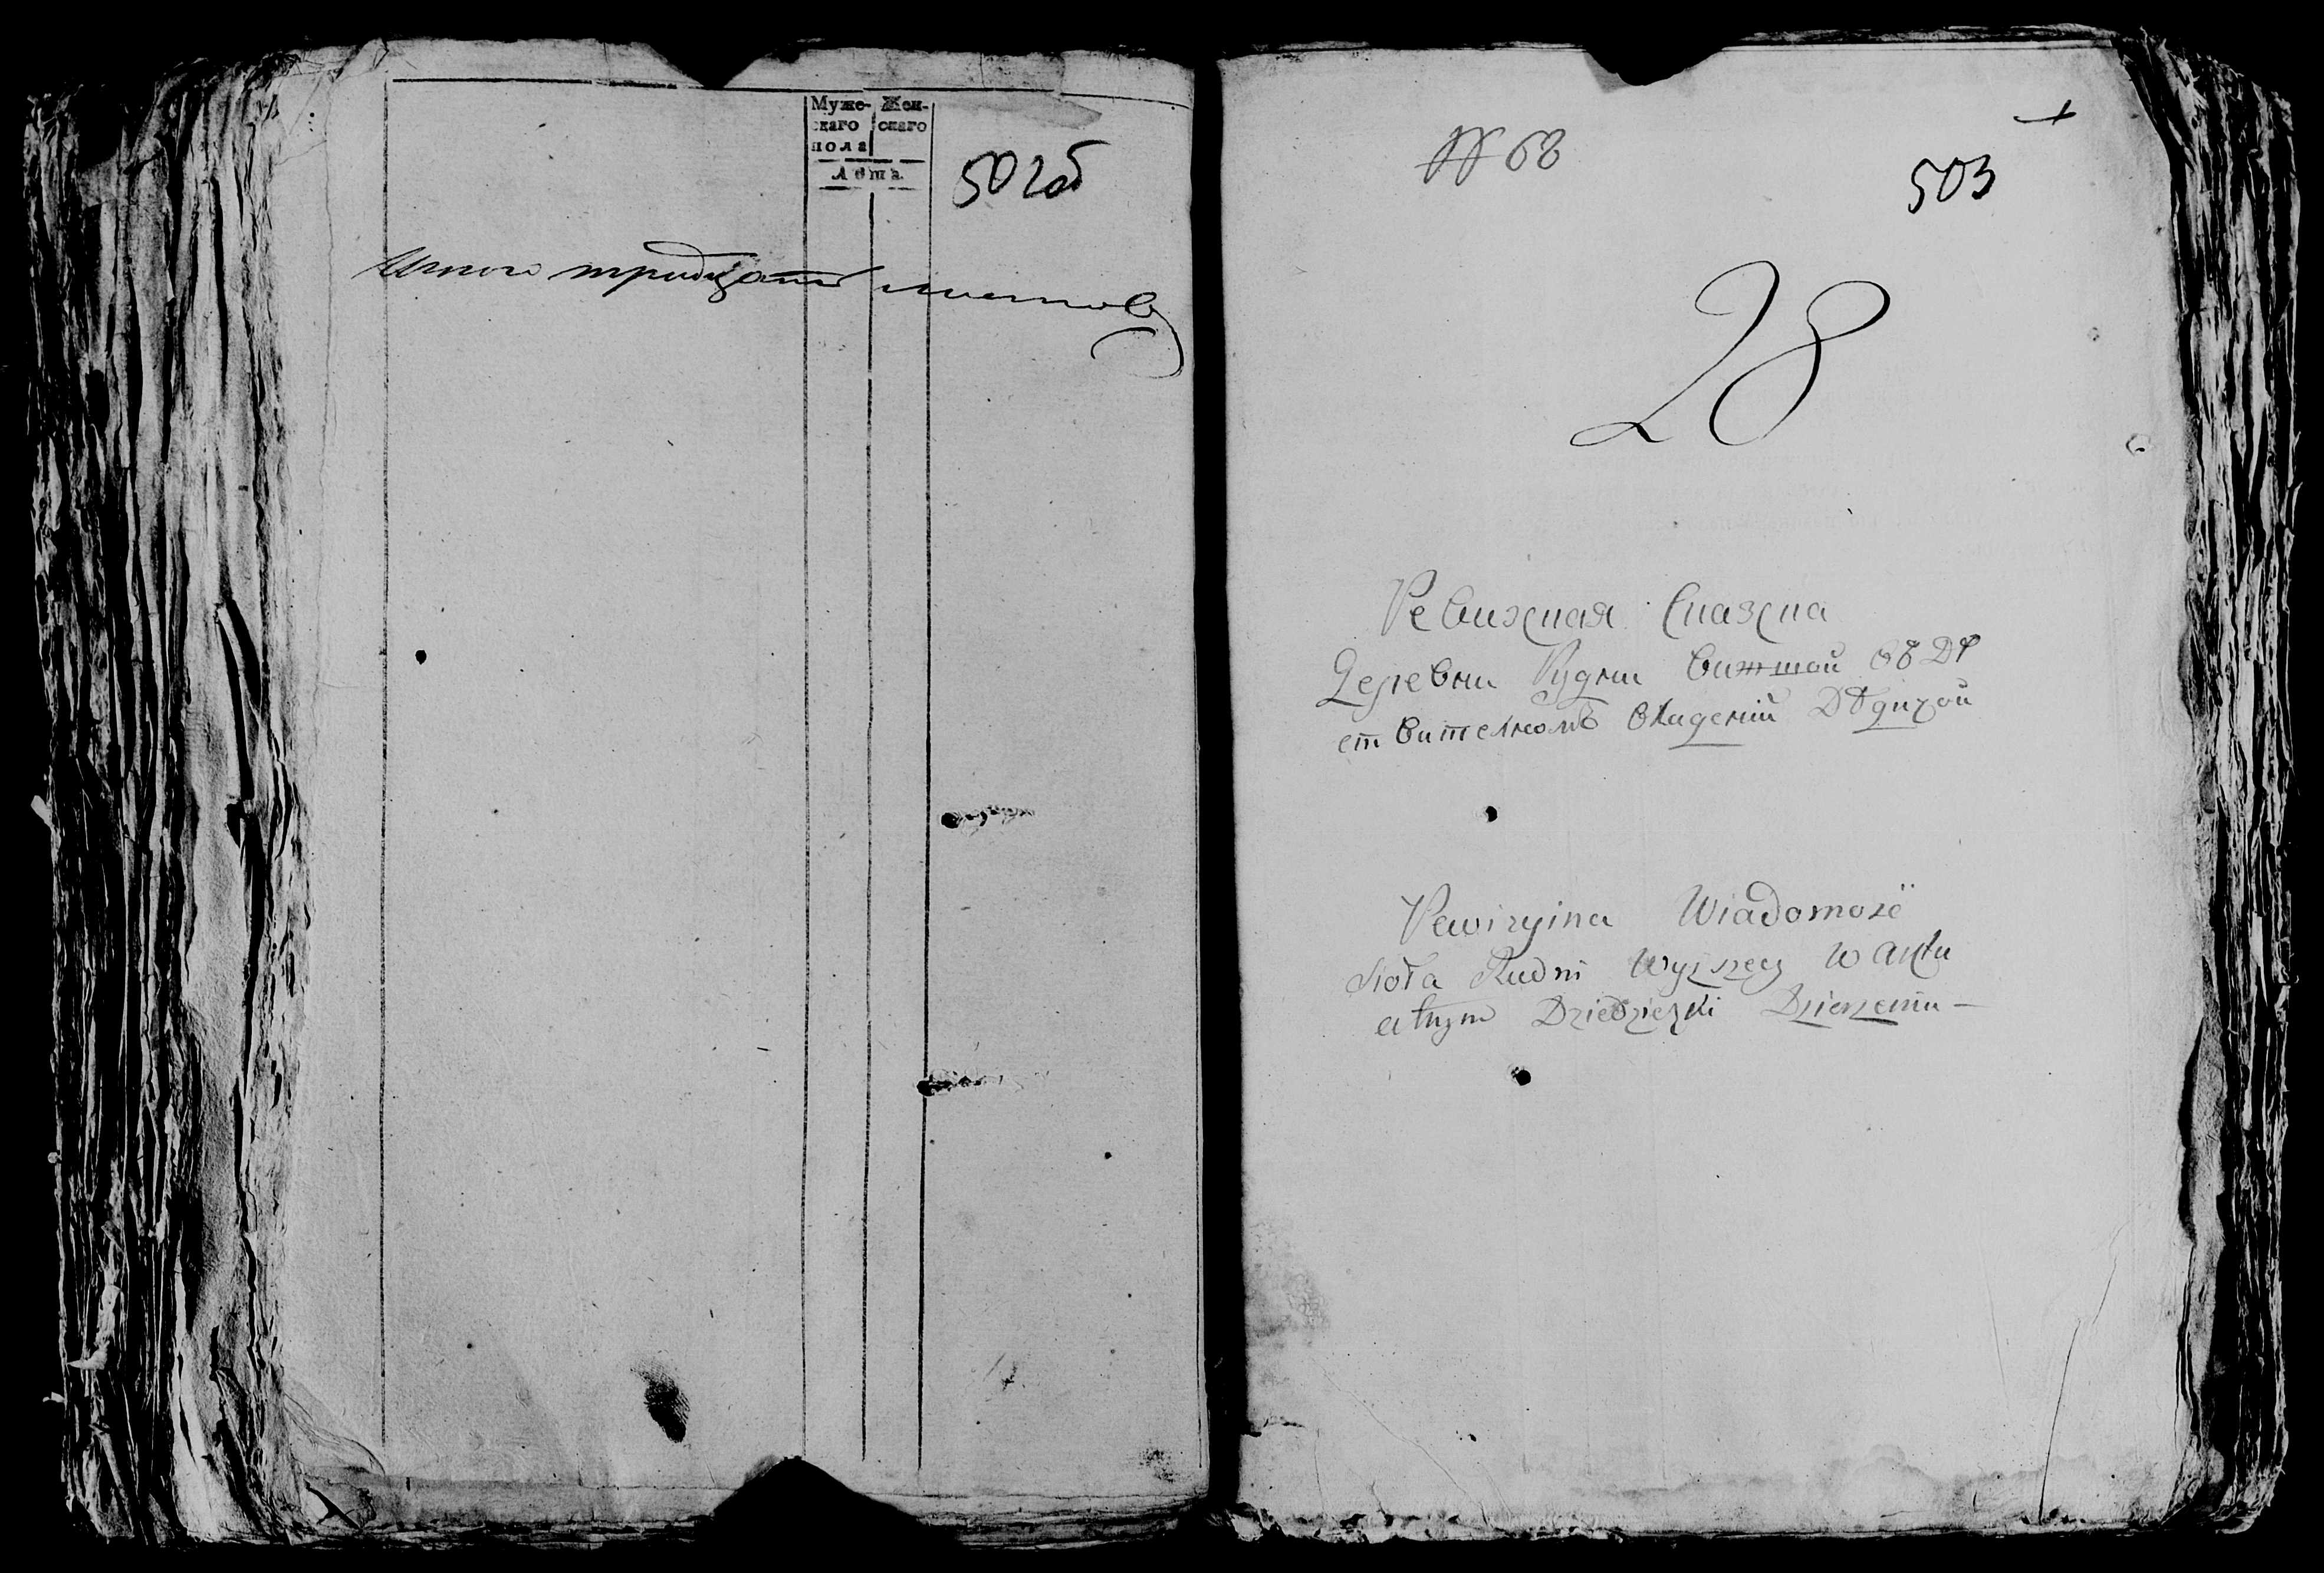 Муже- Жен-
скаго скаго
пола
Лѣта.
502об
Итого тридцать листовъ
№ 68
503
28
Ревизская Сказка
Деревни Рудни Вижшой въ Дѣ
ствителномъ владении Дѣдизкой
Rewizyina Wiadomość
Sioła Rudni Wyzszey w Aktu
alnym Dziedziczki Dzierzeniu —